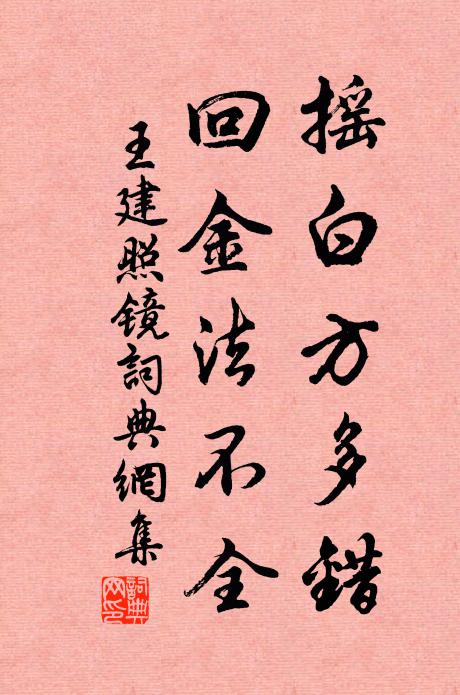 摇白方多錯
回金法不全
王建照镜詞典網集
詞典网印